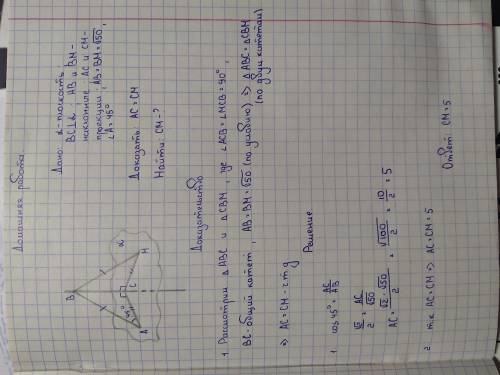 Домашняя работа
B
A
C
M
45°
α
Дано: α-плоскость;
BC⊥α; AB и BM-
наклонные; AC и CM-
проекции; AB=BM=√50;
∠A=45°
Доказать: AC=CM
Найти: CM-?
Доказательство
1. Рассмотрим △ABC и △CBM, где ∠ACB=∠MCB=90°,
BC-общий катет, AB=BM=√50 (по условию) ⇒ △ABC=△CBM
(по двум катетам)
⇒ AC=CM - ч.т.д
Решение
1 cos45°=AC/AB
√2/2 = AC/√50
AC = √2·√50/2 = √100/2 = 10/2 = 5
2 т.к AC=CM ⇒ AC=CM=5
Ответ: CM=5